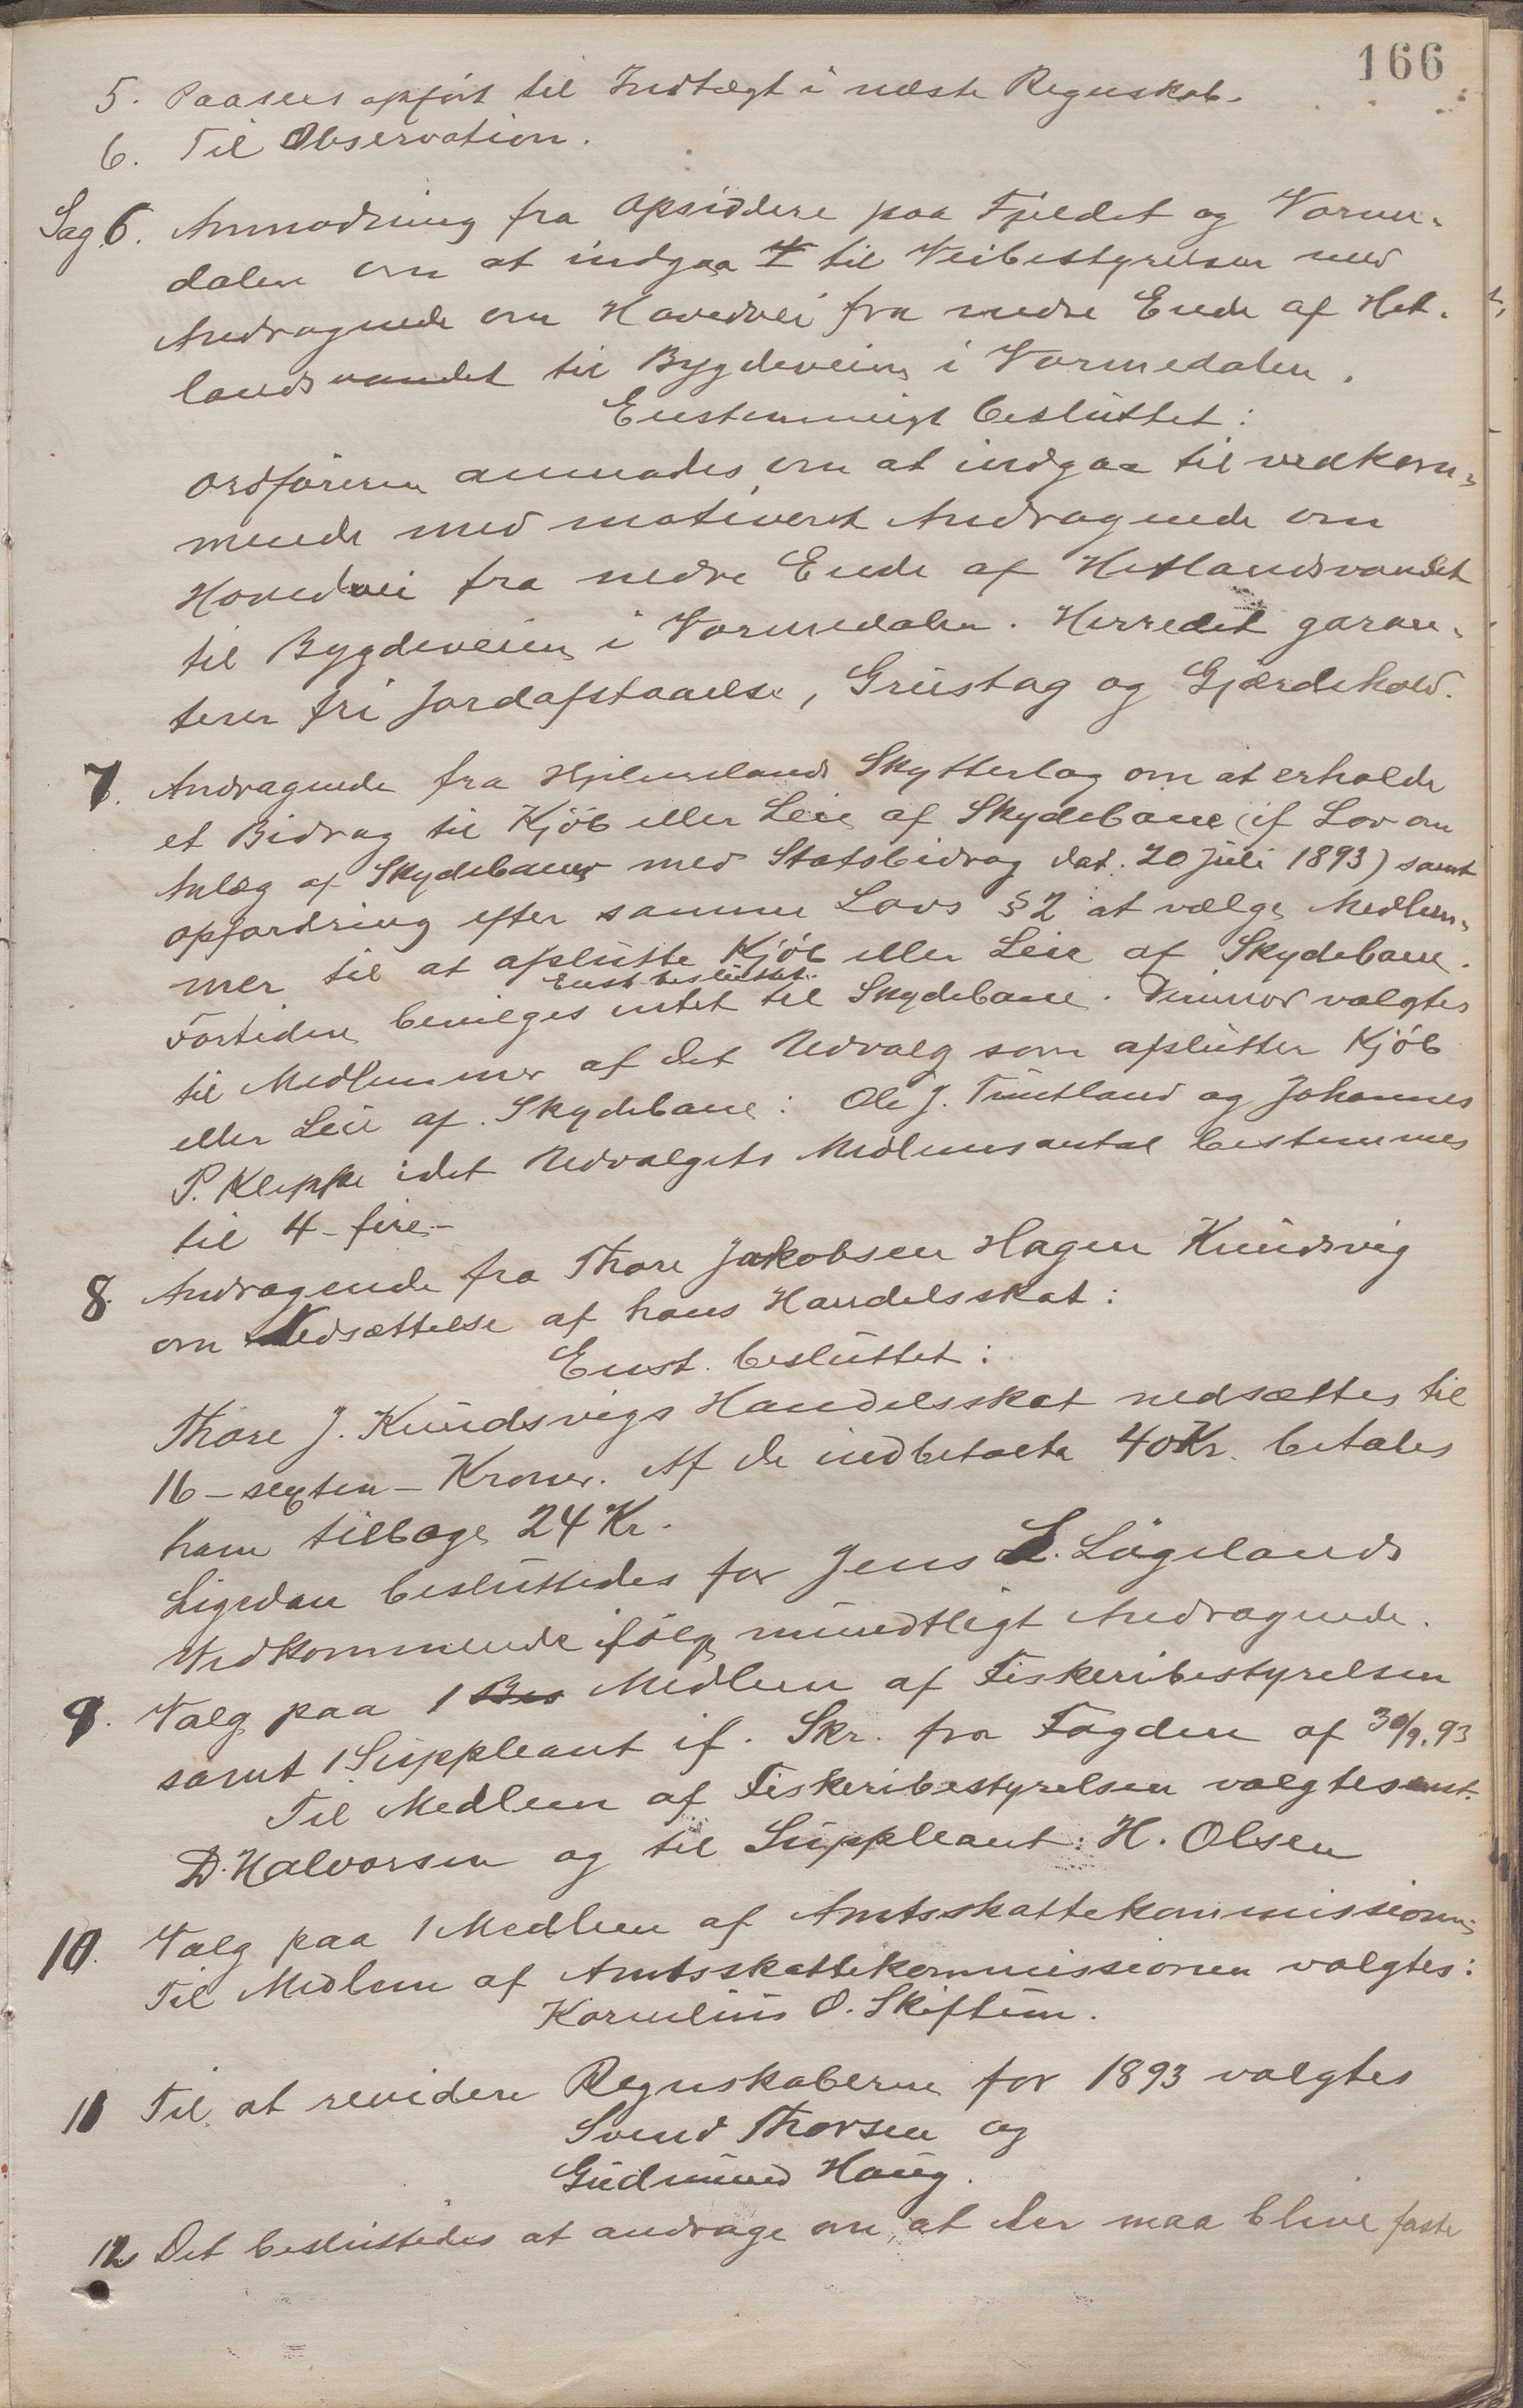 166
5. Paasees opført til Indtægt i næste Regnskab.
6. Til Observation.
Sag 6. Anmodning fra Opsiddere paa Fjeldet og Vorme-
dalen om at indgaa til Veibestyrelsen med
Andragende om Hovedvei fra nedre Ende af Het-
landsvandet til Bygdeveien i Vormedalen.
Enstemmigt besluttet:
Ordføreren anmodes om at indgaa til vedkom-
mende med motiveret Andragende om
Hovedvei fra nedre Ende af Hetlandsvandet
til Bygdeveien i Vormedalen. Herredet garan-
terer fri Jordafstaaelse, Grustag og Gjærdehold.
7. Andragende fra Hjelmelands Skytterlag om at erholde
et Bidrag til Kjöb eller Leie af Skydebane (if Lov om
Anlæg af Skydebaner med Statsbidrag dat. 20 Juli 1893) samt
opfordring efter samme Lovs § 2 at vælge Medlem-
mer til at afslutte Kjöb eller Leie af Skydebane.
Enst. besluttet:
Fortiden bevilges intet til Skydebane. Derimod valgtes
til Medlemmer af det Udvalg som afslutter Kjöb
eller Leie af Skydebane: Ole J. Tuntland og Johannes
P. Kleppe idet Udvalgets Medlemsantal bestemmes
til 4 - fire -
8. Andragende fra Thore Jakobsen Hagen Knudsvig
om Nedsættelse af hans Handelsskat:
Enst. besluttet:
Thore J. Knudsvigs Handelsskat nedsættes til
16 - sexten - Kroner. Af de indbetalte 40 Kr. betales
ham tilbage 24 Kr.
Ligedan besluttedes for Jens L. Lögelands
Vedkommende ifölge mundtligt Andragende.
9. Valg paa 1 Bes Medlem af Fiskeribestyrelsen
samt 1 Suppleant if. Skr. fra Fogden af 30/9.93
Til Medlem af Fiskeribestyrelsen valgtes enst.
D. Halvorsen og til Suppleant: H. Olsen
10. Valg paa 1 Medlem af Amtsskattekommissionen
Til Medlem af Amtsskattekommissionen valgtes:
Kornelius O. Skiftun.
11 Til at revidere Regnskaberne for 1893 valgtes
Svend Thorsen og
Gudmund Haug.
12 Det besluttedes at andrage om at der maa blive faste